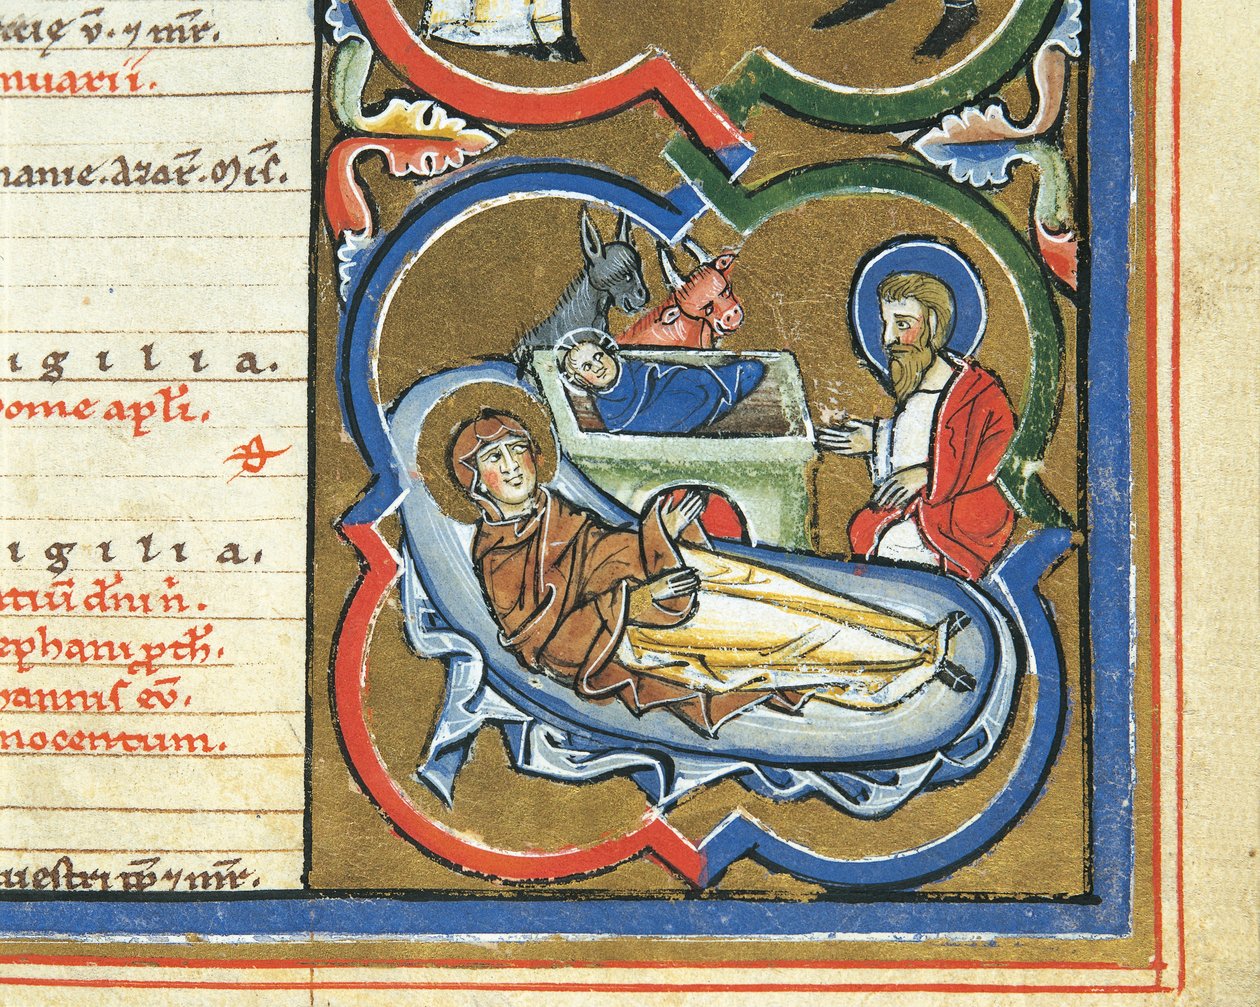 v̄. ⁊ m̄r.
nuarii.
nanie. Azar̄. Mis̄.
igilia.
ome apl̄i.
igilia.
tiū dn̄i n̄.
ephani p̄th̄.
hannis ev̄.
nocentum.
uestri pp̄ ⁊ m̄r.